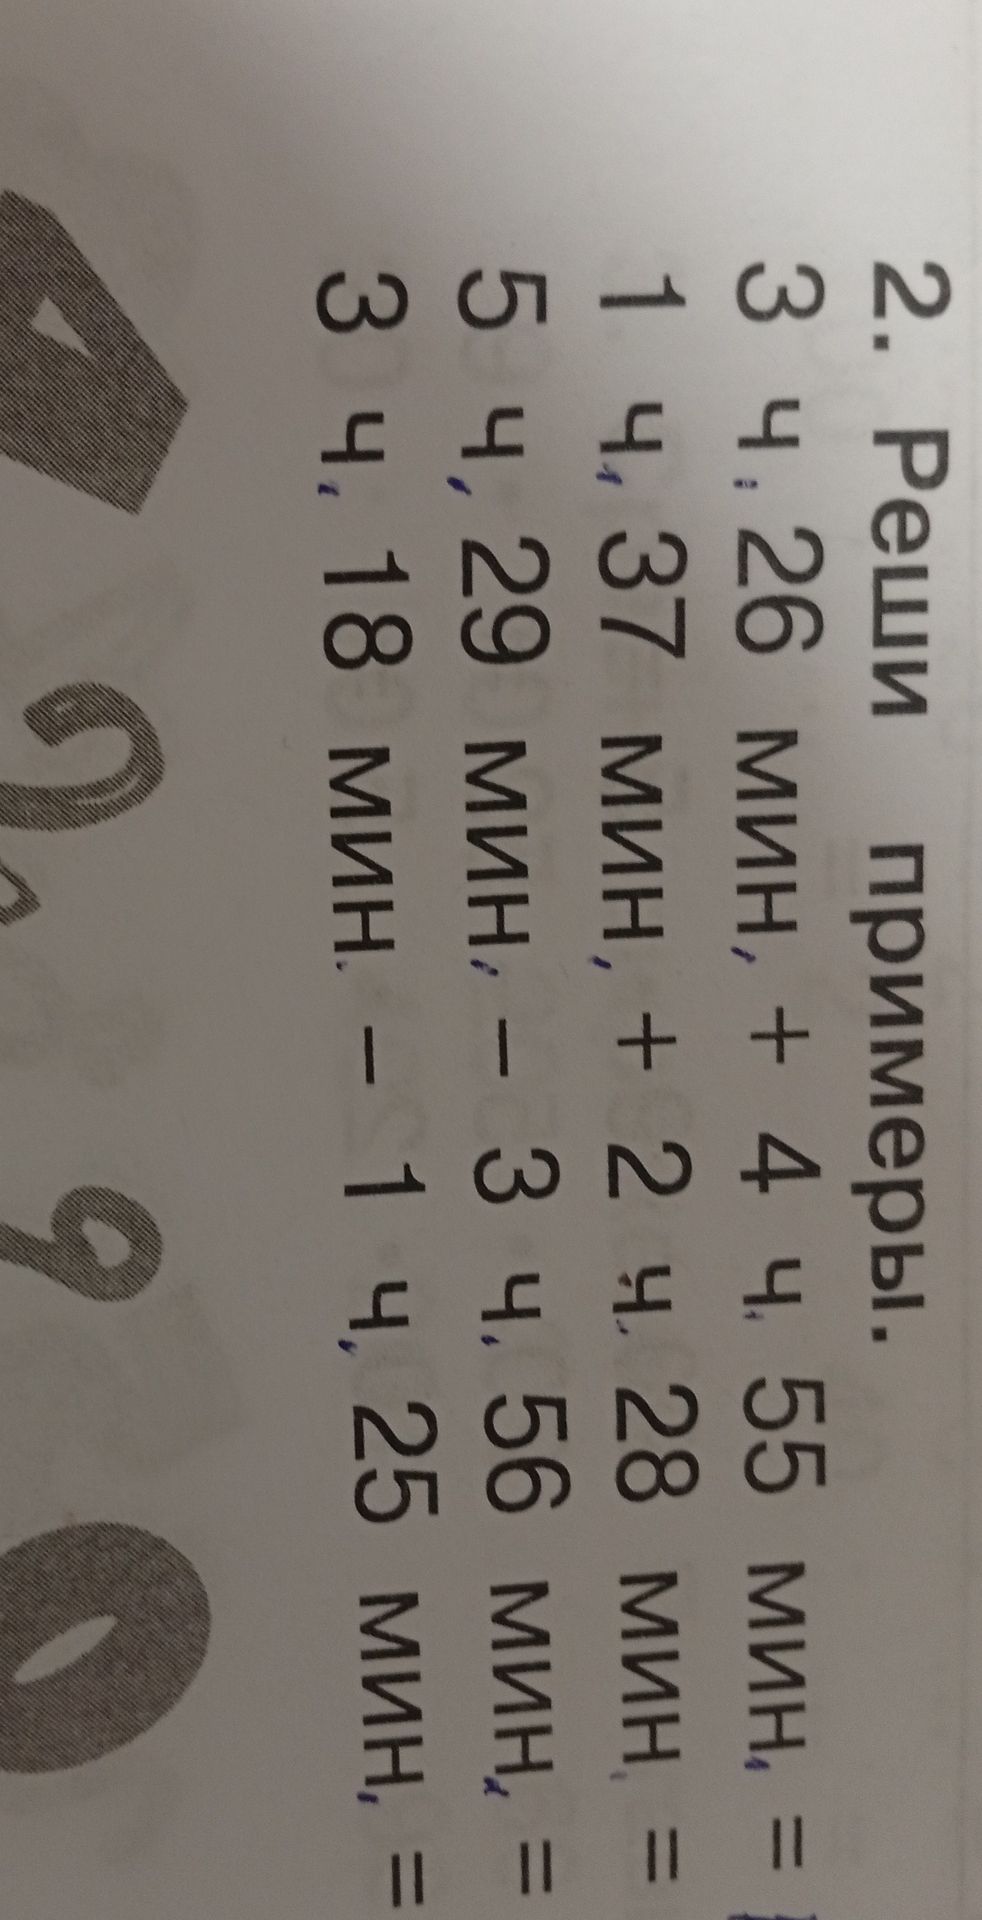 2. Реши примеры.
3 ч. 26 мин. + 4 ч. 55 мин. =
1 ч. 37 мин. + 2 ч. 28 мин. =
5 ч. 29 мин. – 3 ч. 56 мин. =
3 ч. 18 мин. – 1 ч. 25 мин. =